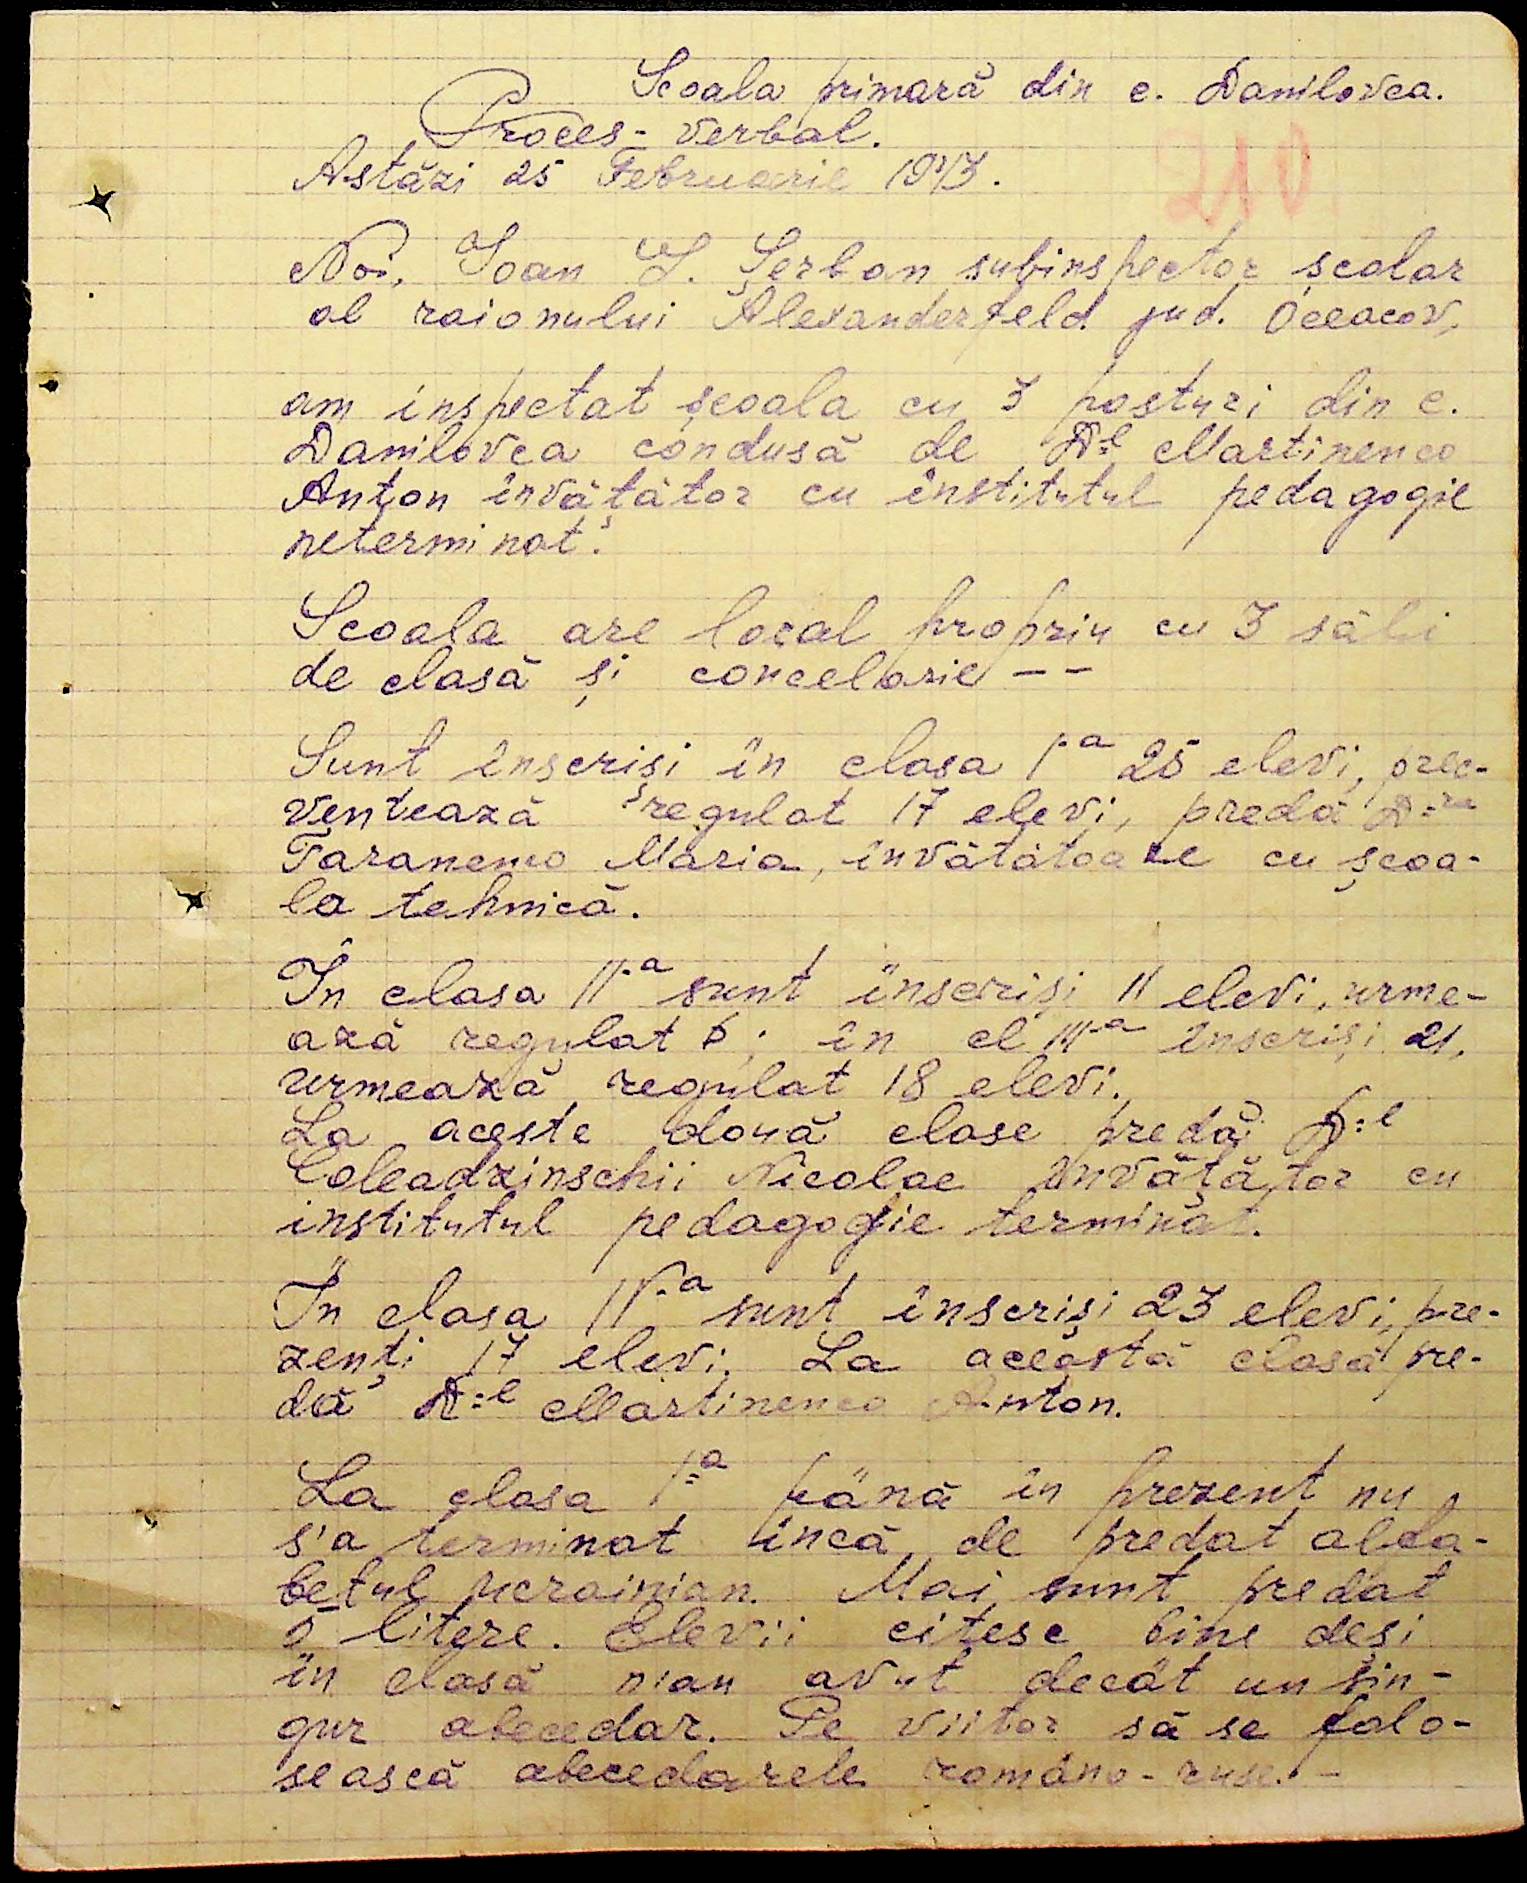 Scoala primară din c. Danilovca.
Proces-verbal.
Astăzi 25 Februarie 1943.
210
Noi, Ioan I. Șerban subinspector școlar
al raionului Alexanderfeld jud. Oceacov,
am inspectat școala cu 3 posturi din c.
Danilovca condusă de D-l Martinenco
Anton învățător cu institutul pedagogic
neterminat.
Scoala are local propriu cu 3 săli
de clasă și concelarie --
Sunt înscriși în clasa I-a 25 elevi, prec-
ventează regulat 17 elevi, predă D-ra
Taranenco Maria, învătătoare cu școa-
la tehnică.
În clasa II-a sunt înscriși 11 elevi, urme-
ază regulat 6; în cl III-a înscriși 21,
urmează regulat 18 elevi.
La aceste două clase predă D-l
Coleadzinschii Nicolae învățător cu
institutul pedagogic terminat.
În clasa IV-a sunt înscriși 23 elevi, pre-
zenți 17 elevi. La această clasă pre-
dă D-l Martinenco Anton.
La clasa I-a până în prezent nu
s'a terminat încă de predat alfa-
betul ucrainian. Mai sunt predat
5 litere. Elevii citesc bine deși
în clasă n'au avut decât un sin-
gur abecedar. Pe viitor să se folo-
sească abecedarele româno-ruse.-